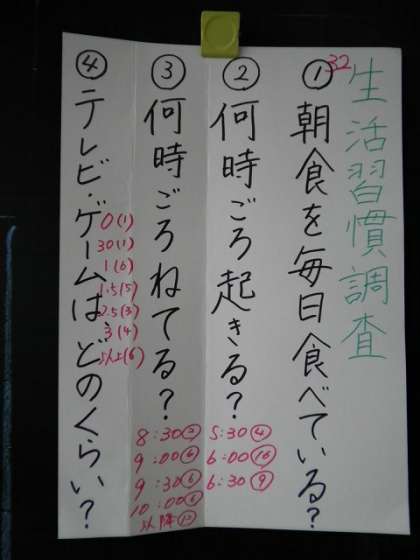 生活習慣調査
①朝食を毎日食べている?
32
②何時ごろ起きる?
5:30④
6:00⑯
6:30⑨
③何時ごろねてる?
8:30②
9:00⑥
9:30⑥
10:00⑥
以降⑫
④テレビ・ゲームは、どのくらい?
0(1)
30(1)
1(6)
1.5(5)
2.5(3)
3(4)
以上(6)